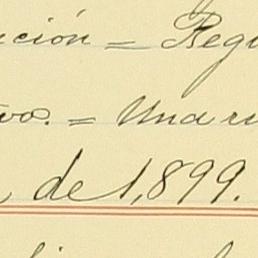 nción = Regi
vos. = Una ru
de 1,899.